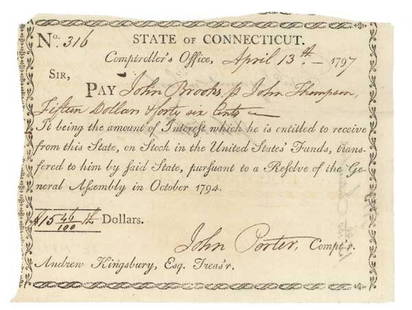 No. 316 STATE OF CONNECTICUT.
Comptroller's Office, April 13th - 1797
SIR,
PAY John Brooks p John Thompson
Fifteen Dollars & forty six Cents
It being the amount of Interest which he is entitled to receive
from this State, on Stock in the United States' Funds, trans-
ferred to him by said State, pursuant to a Resolve of the Ge-
neral Assembly in October 1794.
$15 46/100 Dollars.
John Porter, Compt'r.
Andrew Kingsbury, Esq. Treas'r.